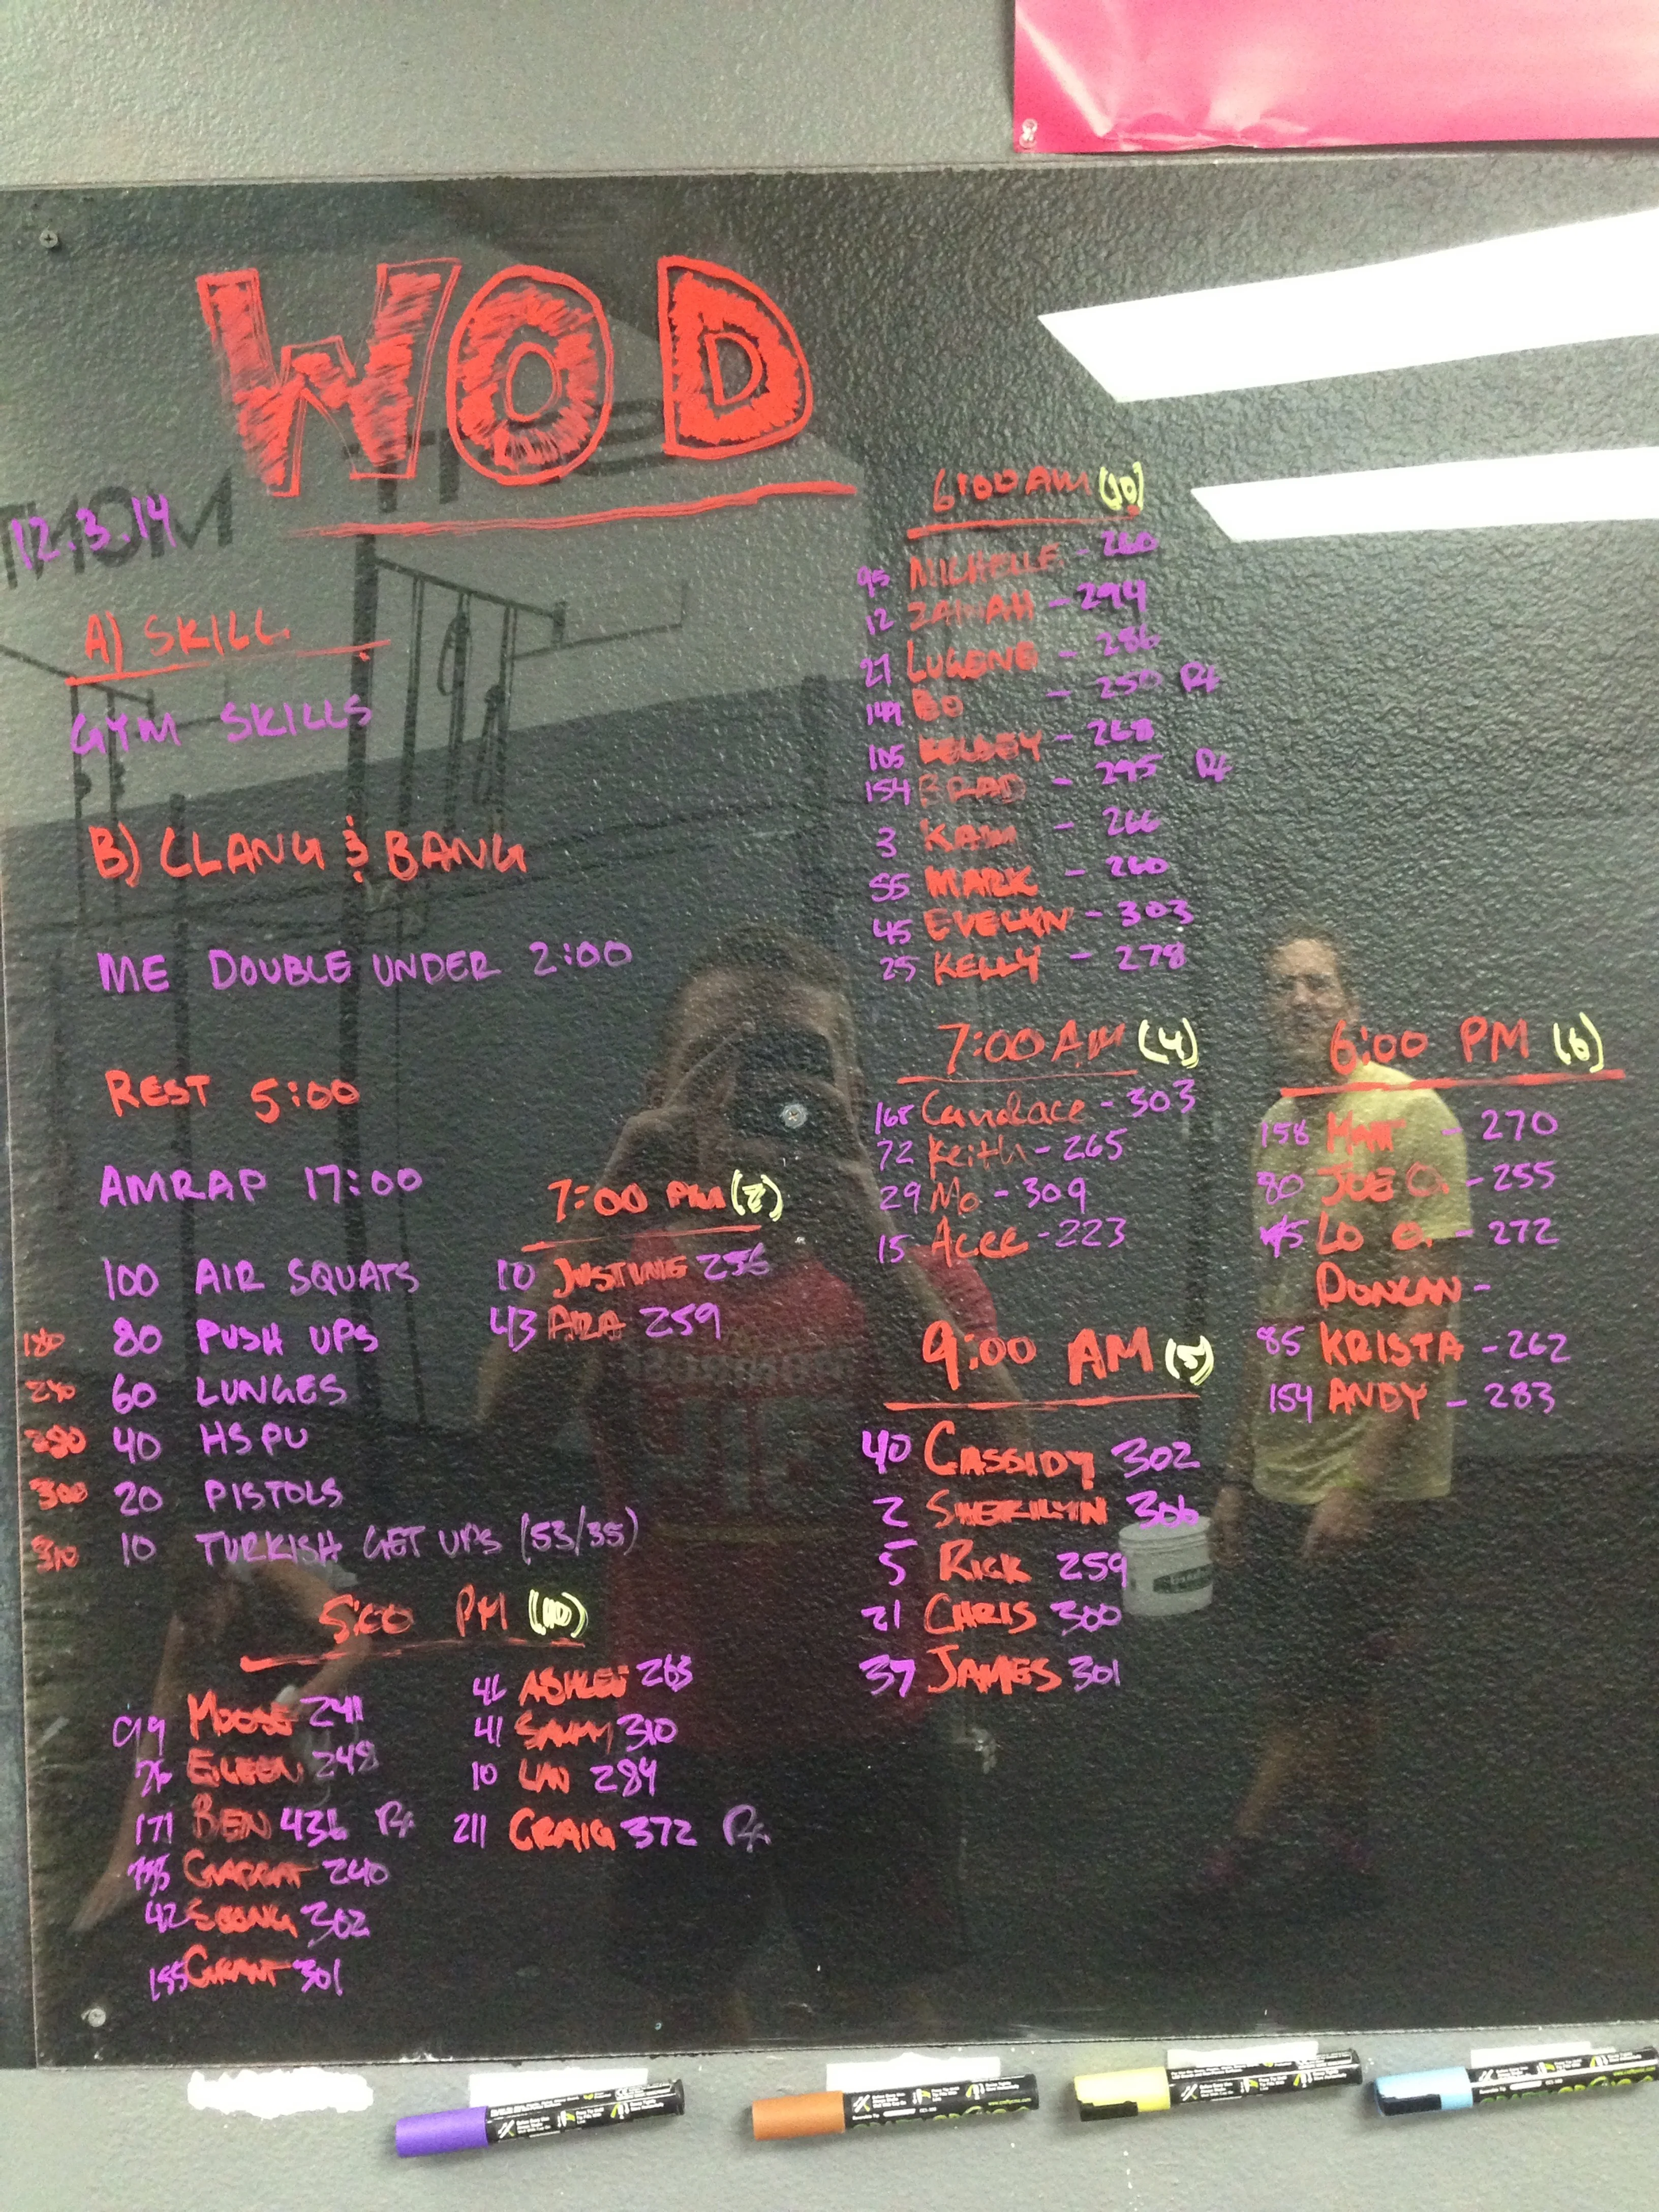 WOD
12.3.14
A) SKILL
GYM SKILLS
B) CLANG & BANG
ME DOUBLE UNDER 2:00
REST 5:00
AMRAP 17:00
100 AIR SQUATS
180 80 PUSH UPS
240 60 LUNGES
280 40 HSPU
300 20 PISTOLS
310 10 TURKISH GET UPS (53/35)
5:00 PM (10)
99 MOOSE 241
EILEEN 248
171 BEN 436 Rx
GARRAT 240
42 SEONG 302
155 GRANT 301
ASHLEE 263
41 SAMMY 310
10 LAN 284
211 CRAIG 372 Rx
7:00 PM (2)
10 JUSTINE 256
43 ARA 259
6:00 AM (10)
95 MICHELLE - 260
12 - 294
27 LUGENE - 286
149 BO - 250 Rx
105 KELSEY - 268
154 BRAD - 295 Rx
3 KAIM - 266
55 MARK - 260
45 EVELYN - 303
25 KELLY - 278
7:00 AM (4)
168 Candace - 303
72 Keith - 265
29 Mo - 309
15 - 223
9:00 AM (5)
40 CASSIDY 302
2 SHERILYN 306
5 RICK 259
21 CHRIS 300
37 JAMES 301
6:00 PM (6)
158 MATT - 270
80 JOE O. - 255
LO O. - 272
DUNCAN -
85 KRISTA - 262
154 ANDY - 283